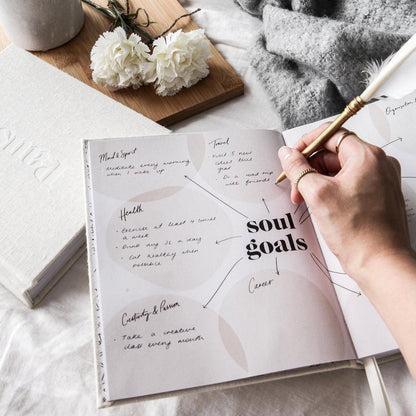 Mind & Spirit
Meditate every morning
when I wake up
Travel
Visit 5 new
cities this
year
Do a road trip
with friends
Health
Exercise at least 4 times
a week
Drink my 2L a day
Eat healthy when
possible
soul
goals
Career
Creativity & Passion
Take a creative
class every month